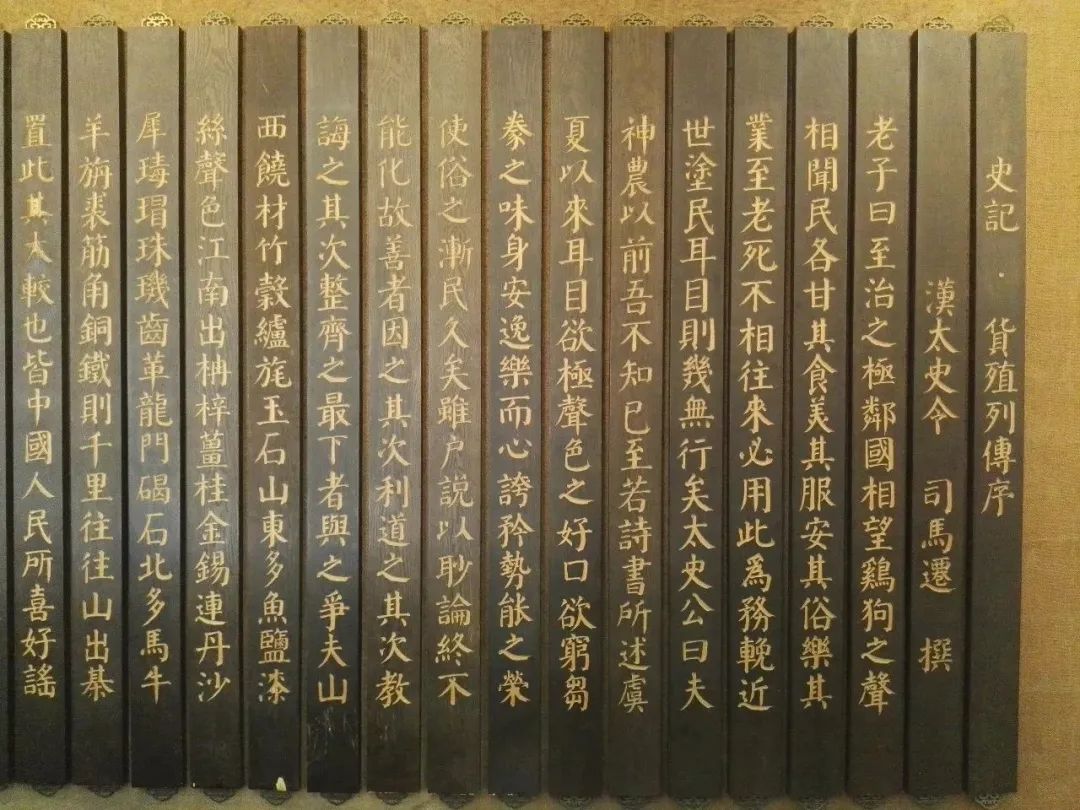 史記 · 貨殖列傳序
漢太史令 司馬遷 撰
老子曰至治之極鄰國相望鷄狗之聲
相聞民各甘其食美其服安其俗樂其
業至老死不相往來必用此爲務輓近
世塗民耳目則幾無行矣太史公曰夫
神農以前吾不知已至若詩書所述虞
夏以來耳目欲極聲色之好口欲窮芻
豢之味身安逸樂而心誇矜勢能之榮
使俗之漸民久矣雖户說以眇論終不
能化故善者因之其次利道之其次教
誨之其次整齊之最下者與之爭夫山
西饒材竹穀纑旄玉石山東多魚鹽漆
絲聲色江南出枏梓薑桂金錫連丹沙
犀瑇瑁珠璣齒革龍門碣石北多馬牛
羊旃裘筋角銅鐵則千里往往山出棊
置此其大較也皆中國人民所喜好謠